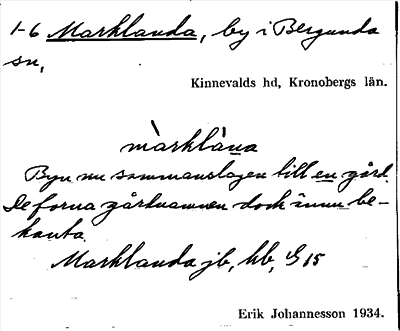 1-6 Marklanda, by i Bergunda
sn,
Kinnevalds hd, Kronobergs län.
màrklàna
Byn nu sammanslagen till en gård.
De forna gårdnamnen dock ännu be-
kanta.
Marklanda jb, hb, G 15
Erik Johannesson 1934.